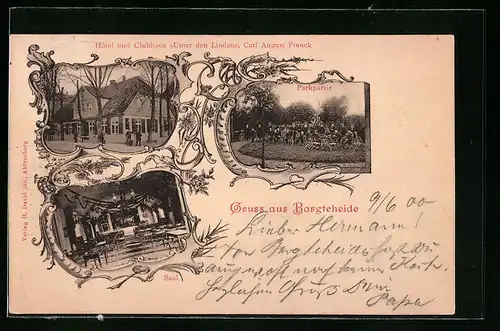 Hôtel und Clubhaus »Unter den Linden«, Carl August Freuck
Parkpartie
Verlag H. David jun., Ahrensburg
Gruss aus Bargteheide
Saal
9/6 00
Lieber Hermann!
Von Bargteheide hast Du
noch keine Karte.
Herzlichen Gruß Dein
Papa